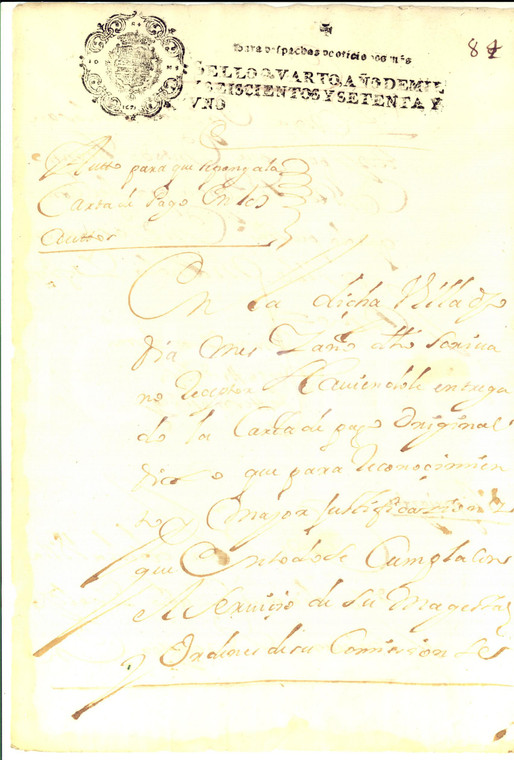 84
Para despachos de oficio dos mrs
SELLO QVARTO, AÑO DE MIL
SEISCIENTOS Y SETENTA Y
VNO
Autto para que se ponga la
Carta de Pago En los
Auttos
En la dicha Villa
dia mes Y año dho
no Receptor Haviendole entrega
do la Carta de pago Original
dixo que para Reconocimien
to y mayor Justificazion
que En todo se Cumpla con
el Servizio de Su Magestad
y Ordenes de su Comission